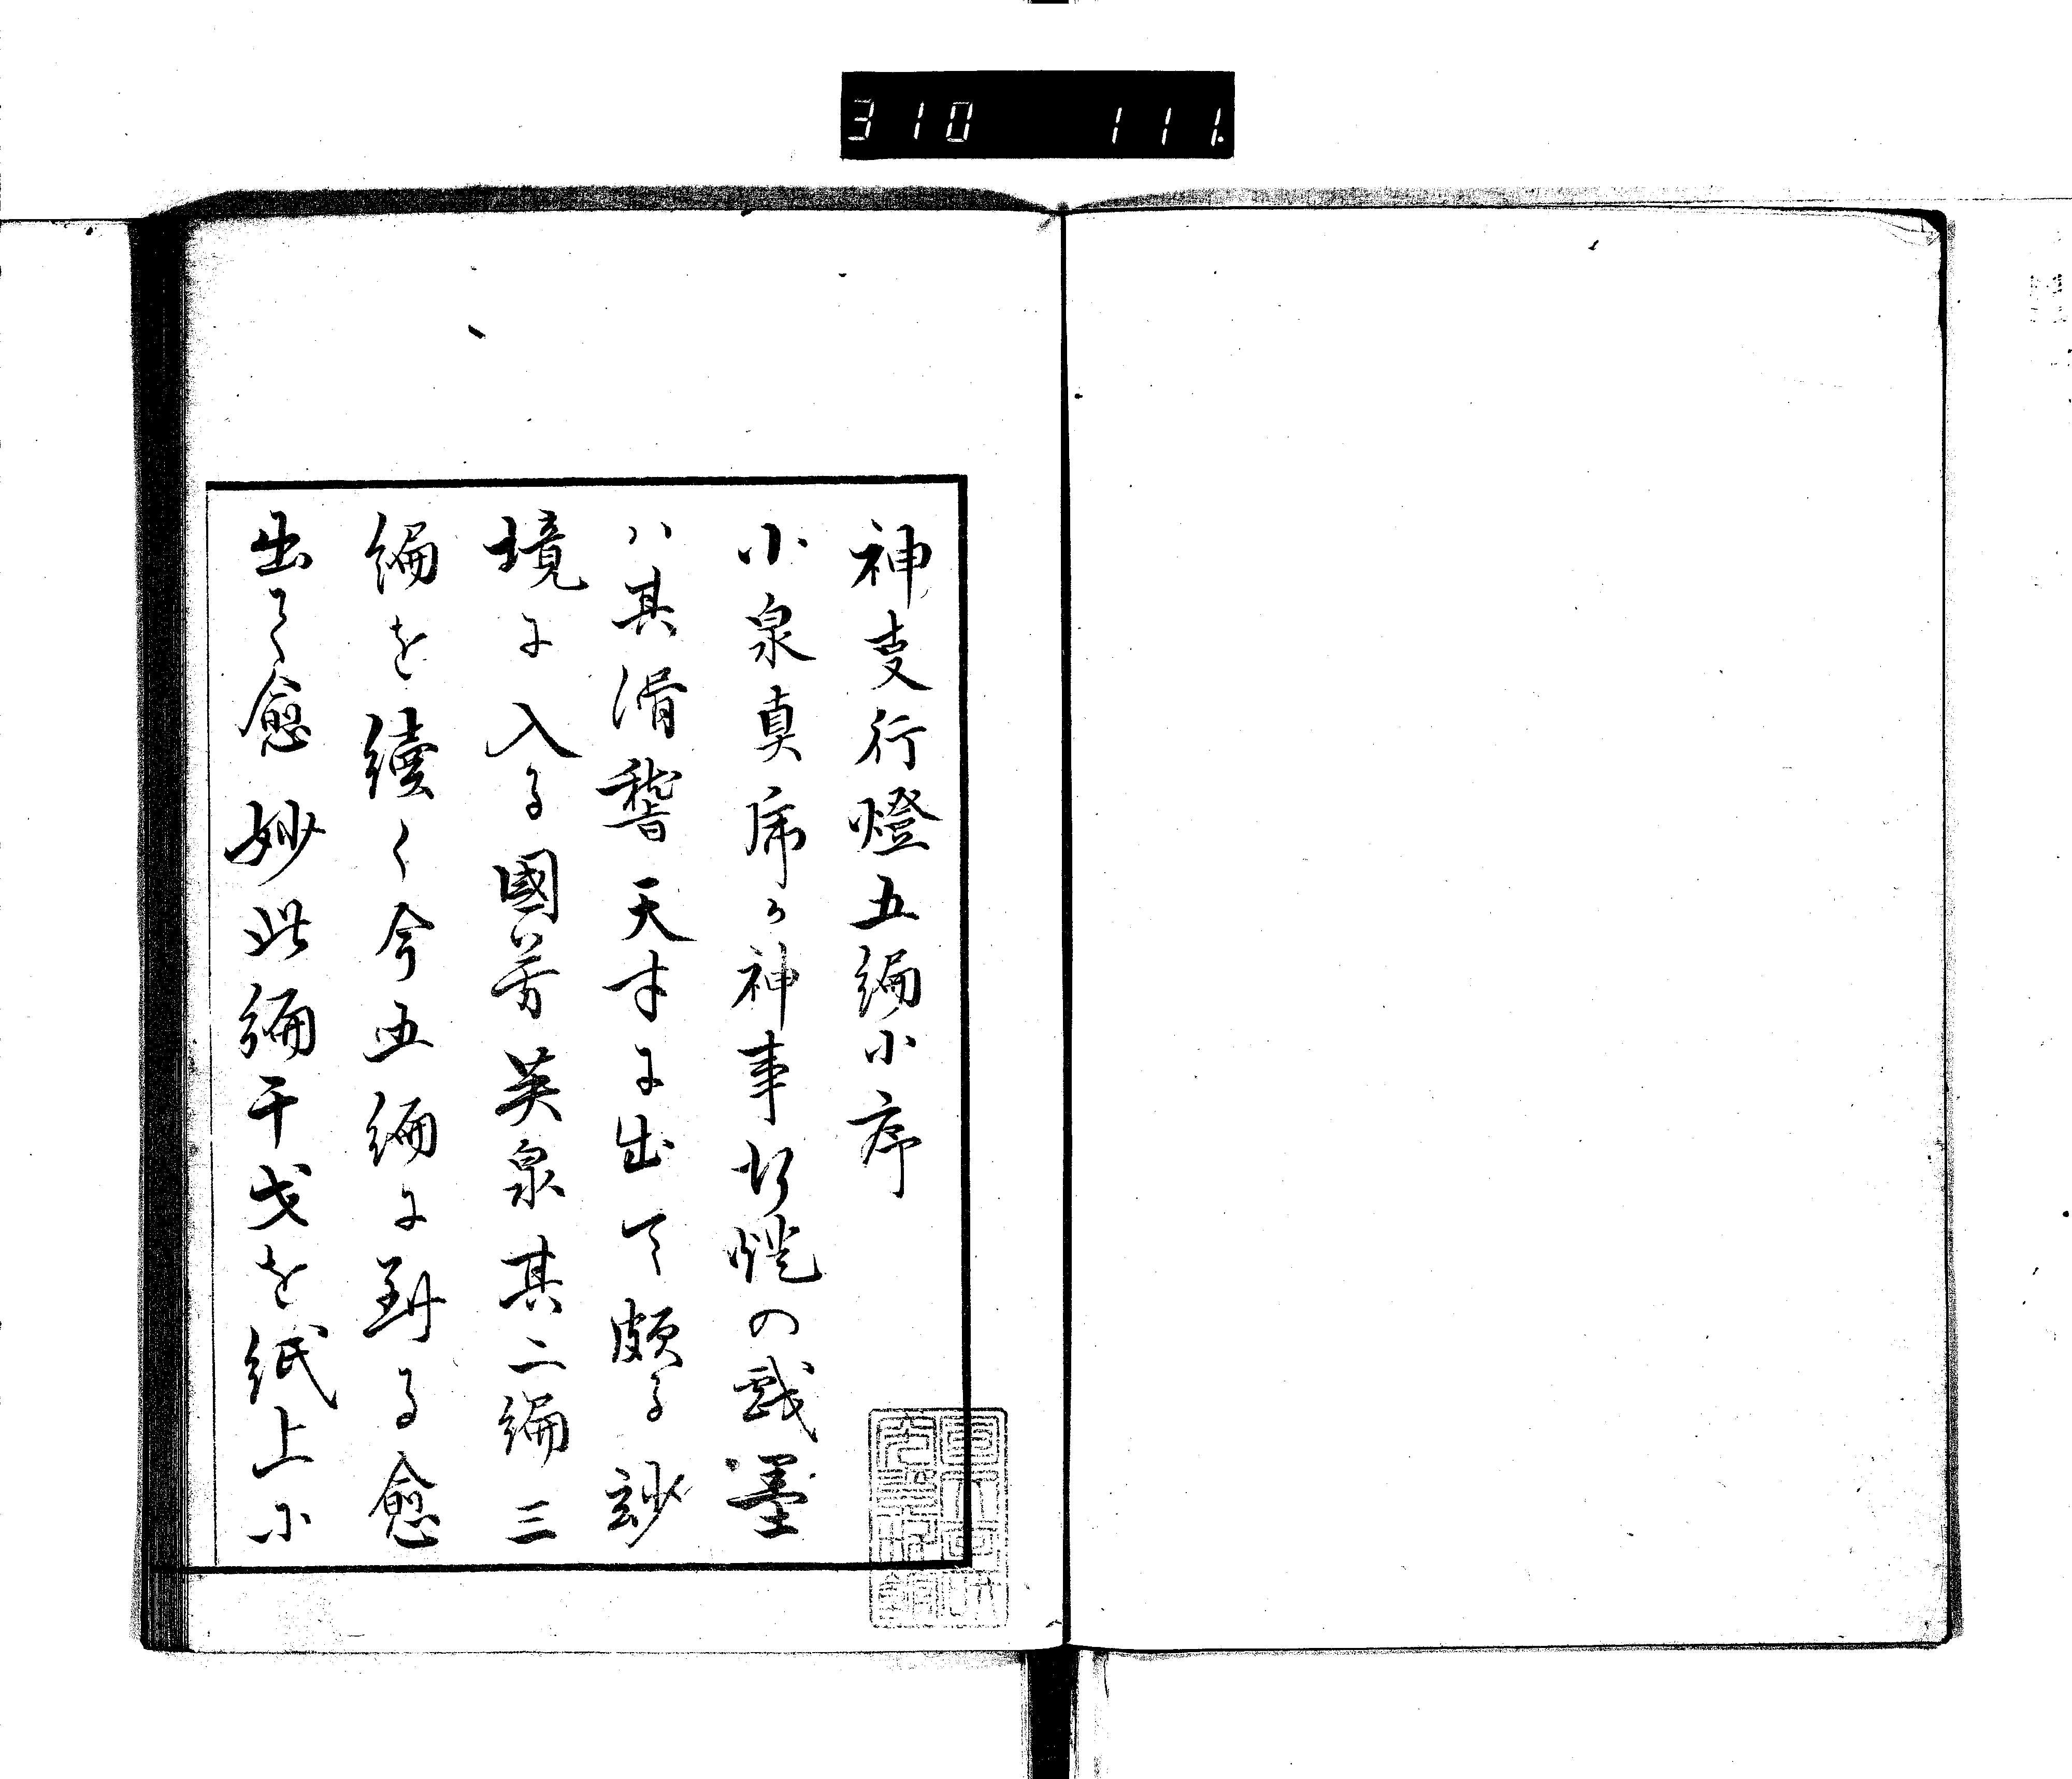 310 111.
神支行燈五編小序
小泉真席が神事行燈の戯墨
ハ其滑稽天才に出て頗る妙
境に入る國芳英泉其二編三
編を續く今五編に到る愈
出て愈妙此編干戈を紙上に